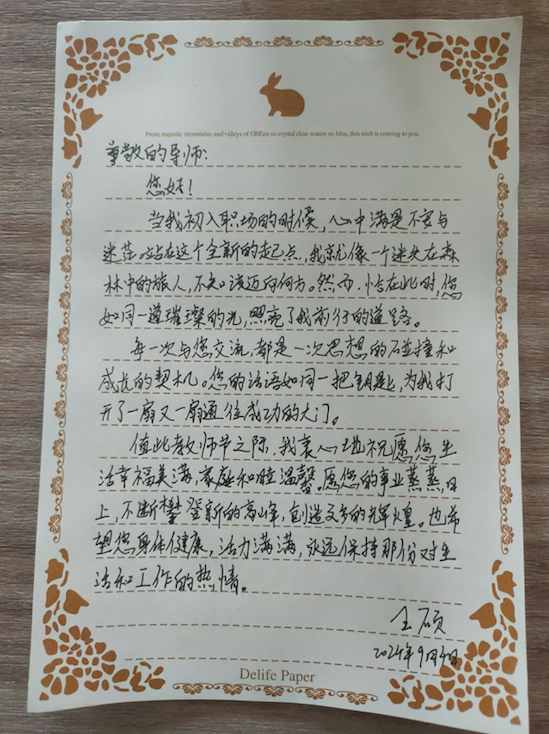 From majestic mountains and valleys of GREen to crystal clear waters so blue, this wish is coming to you
重敬的导师:
您好!
当我初入职场的时候,心中满是不安与
迷茫。站在这个全新的起点,我就像一个迷失在森
林中的旅人,不知该迈向何方。然而,恰在此时,您
如同一道璀璨的光,照亮了我前行的道路。
每一次与您交流,都是一次思想的碰撞和
成长的契机。您的话语如同一把钥匙,为我打
开了一扇又一扇通往成功的大门。
值此教师节之际,我衷心地祝愿您生
活幸福美满,家庭和睦温馨,愿您的事业蒸蒸日
上,不断攀登新的高峰,创造更多的辉煌。也希
望您身体健康,活力满满,永远保持那份对生
活和工作的热情。
王硕
2024年9月4日
Delife Paper